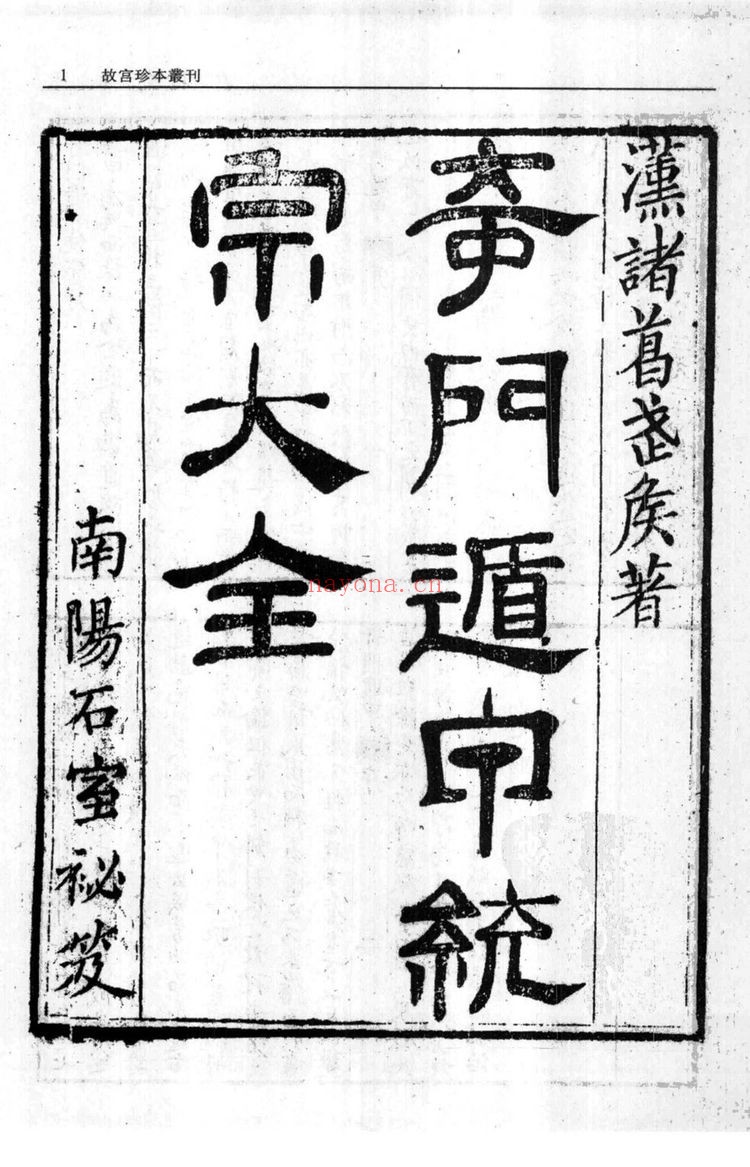 1 故宫珍本叢刊
漢諸葛武矦著
奇門遁甲統
宗大全
南陽石室祕笈
nayona.cn